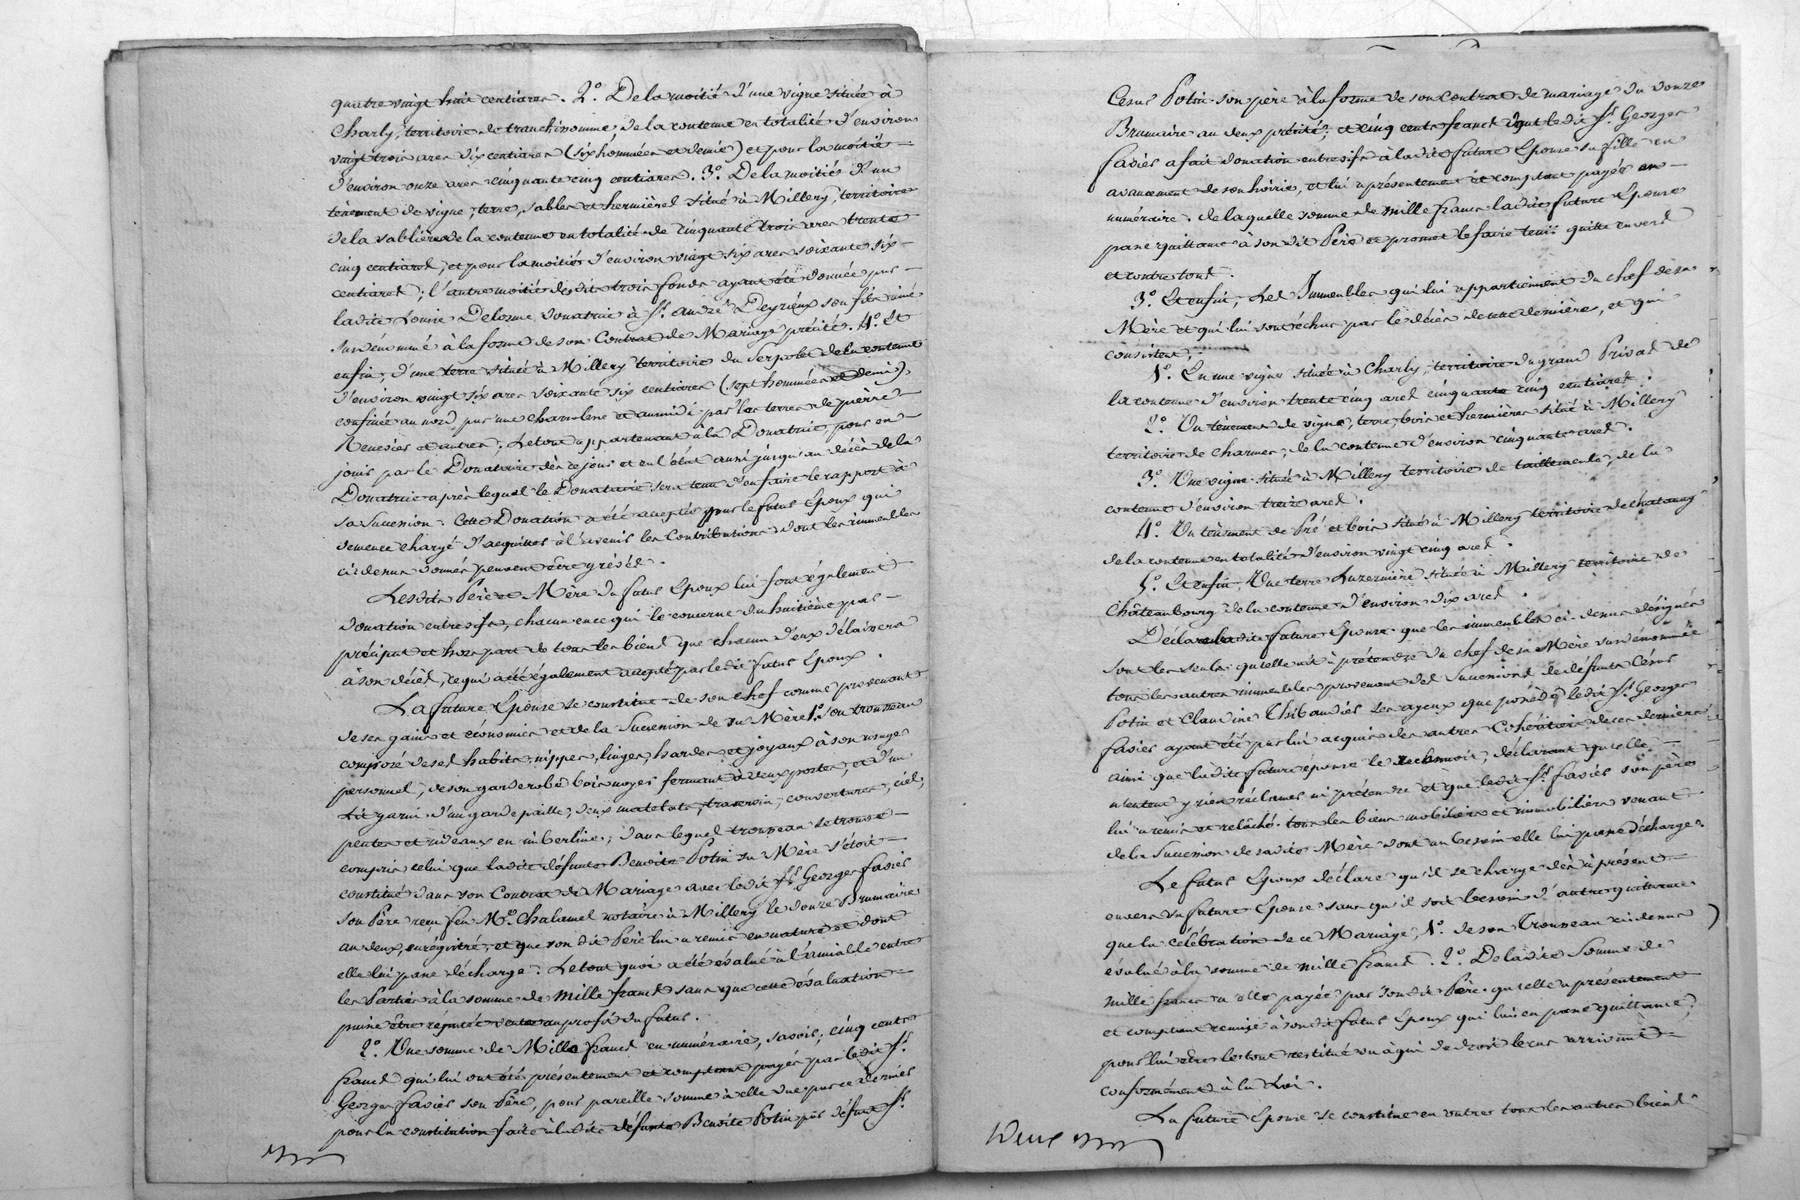 quatre vingt huit centiares. 2.° De la moitié d'une vigne située à
Charly, territoire de tranchinomme, de la contenue en totalité d'environ
vingt trois ares dix centiares (six hommées et demie) et pour la moitié
d'environ onze ares cinquante cinq centiares. 3.° De la moitié d'un
tènement de vigne, terre, sables et hermières situé à Millery, territoire
de la sablière de la contenue en totalité de cinquante trois ares trente
cinq centiares, et pour la moitié d'environ vingt six ares soixante six
centiares; l'autre moitié desdits trois fonds ayant été donnée par
ladite Louise Delorme donatrice à S.r André Deyrieux son fils ainé
surnommé à la forme de son Contrat de Mariage précité. 4.° Et
enfin, d'une terre située à Millery territoire du Serpolet de la contenue
d'environ vingt six ares soixante six centiares (sept hommées et demie),
confinée au nord par une charrière et au midi par les terres de pierre
et autres; Le tout appartenant à la Donatrice, pour en
jouir par le Donataire dès ce jour et en l'état aussi jusqu'au décès de la
Donatrice après lequel le Donataire sera tenu d'en faire le rapport à
sa Succession. Cette Donation a été acceptée par le futur Epoux qui
demeure chargé d'acquitter à l'avenir les Contributions dont les immeubles
ci-dessus donnés peuvent être grévés.
Lesdits Père et Mère du futur Epoux lui font également
donation entrevifs, chacun en ce qui le concerne du huitième par
préciput et hors part de tous les biens que chacun d'eux délaissera
à son décès, ce qui a été également accepté par ledit futur Epoux.
La future Epouse se constitue de son chef comme provenant
de ses gains et économies et de la Succession de sa Mère 1.° Son trousseau
composé de ses habits, nippes, linges, hardes, et joyaux à son usage
personnel, de son garderobe bois noyer fermant à deux portes, et d'un
Lit garni d'un gardepaille, deux matelats, traversin, couvertures, ciel,
pentes et rideaux en imberline; dans lequel trousseau se trouve
compris celui que ladite défunte Benoite Potin sa Mère s'étoit
constitué dans son Contrat de Mariage avec ledit S.r George Favier
son Père reçu feu M.e Chalamel notaire à Millery le douze Brumaire
an deux, enregistré, et que son dit Père lui a remis en nature et dont
elle lui passe décharge. Le tout quoi a été évalué à l'amiable entre
les Parties à la somme de mille francs sans que cette évaluation
puisse être réputée vente au profit du futur.
2.° Une somme de Mille francs en numéraire, savoir; cinq cents
francs qui lui ont été présentement et comptant payés par ledit S.r
George Favier son Père, pour pareille somme à elle due par ce dernier
pour la constitution faite à ladite défunte Benoite Potin par défunt S.r
Cesar Potin son père à la forme de son contrat de mariage du douze
Brumaire an deux précité; et cinq cents francs dont ledit S.r George
favier a fait donation entrevifs à ladite future Epouse sa fille en
avancement de son hoirie, et lui a présentement et comptant payés en
numéraire. de laquelle somme de mille francs ladite future Epouse
passe quittance à son dit Père et promet le faire tenir quitte envers
et contre tous.
3.° Et enfin, Les Immeubles qui lui appartiennent du chef de sa
Mère et qui lui sont échus par le décès de cette dernière, et qui
consistent;
1.° En une vigne située à Charly, territoire du grand Privat de
la contenue d'environ trente cinq ares cinquante cinq centiares.
2.° Un tènement de vigne, terre, bois et hermières situé à Millery
territoire de charmes, de la contenue d'environ cinquante ares.
3.° Une vigne située à Millery territoire de taillements, de la
contenue d'environ treize ares.
4.° Un tènement de Pré et bois situé à Millery territoire de chatanay
de la contenue en totalité d'environ vingt cinq ares.
5.° Et enfin, Une terre Luzernière située à Millery territoire de
Châteaubourg de la contenue d'environ dix ares.
Déclare ladite future Epouse que les immeubles ci-dessus désignés
sont les seuls qu'elle ait à prétendre du chef de sa Mère surnommée
tous les autres immeubles provenant des Successions de défunts César
Potin et Claudine Thibaudier ses ayeux que possède ledit S.r George
favier ayant été par lui acquis des autres Cohéritiers de ces derniers
ainsi que ladite future épouse le reconnoit, déclarant qu'elle
n'entend y rien réclamer ni prétendre et que ledit S.r favier son père
lui a remis et relâché tous les biens mobiliers et immobiliers venant
de la Succession de sadite Mère dont au besoin elle lui passe décharge.
Le futur Epoux déclare qu'il se charge dès à présent
envers sa future Epouse sans qu'il soit besoin d'autre quittance
que la célébration de ce Mariage, 1.° de son Trousseau ci-dessus
évalué à la somme de mille francs. 2.° De ladite somme de
mille francs à elle payée par sondit Père qu'elle a présentement
et comptant remise à sondit futur Epoux qui lui en passe quittance,
pour lui être le tout restitué ou à qui de droit le cas arrivant
conformément à la Loi.
La future Epouse se constitue en outre tous les autres biens